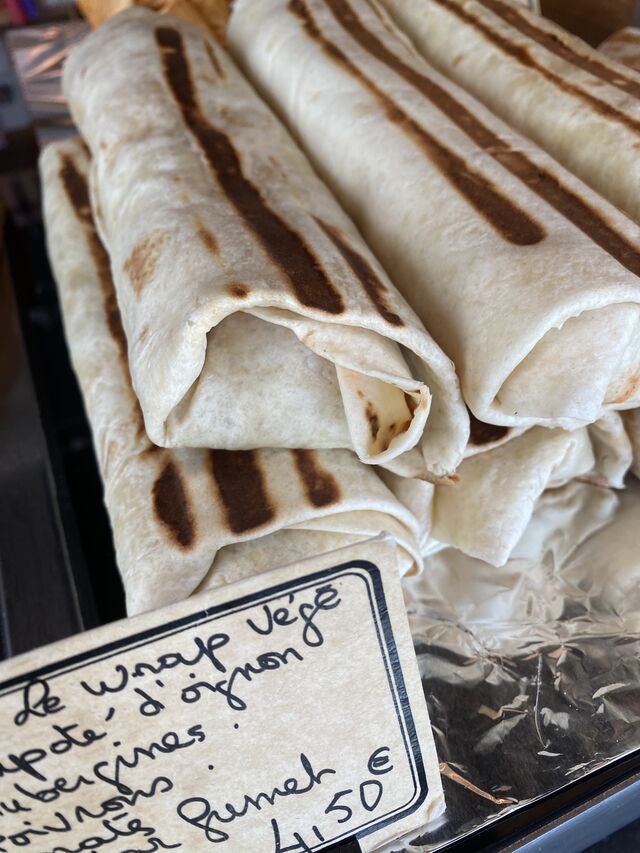 Le wrap végé
mpoté, d'oignon
ubergines.
oivrons.
mates
gumeh
4,50 €